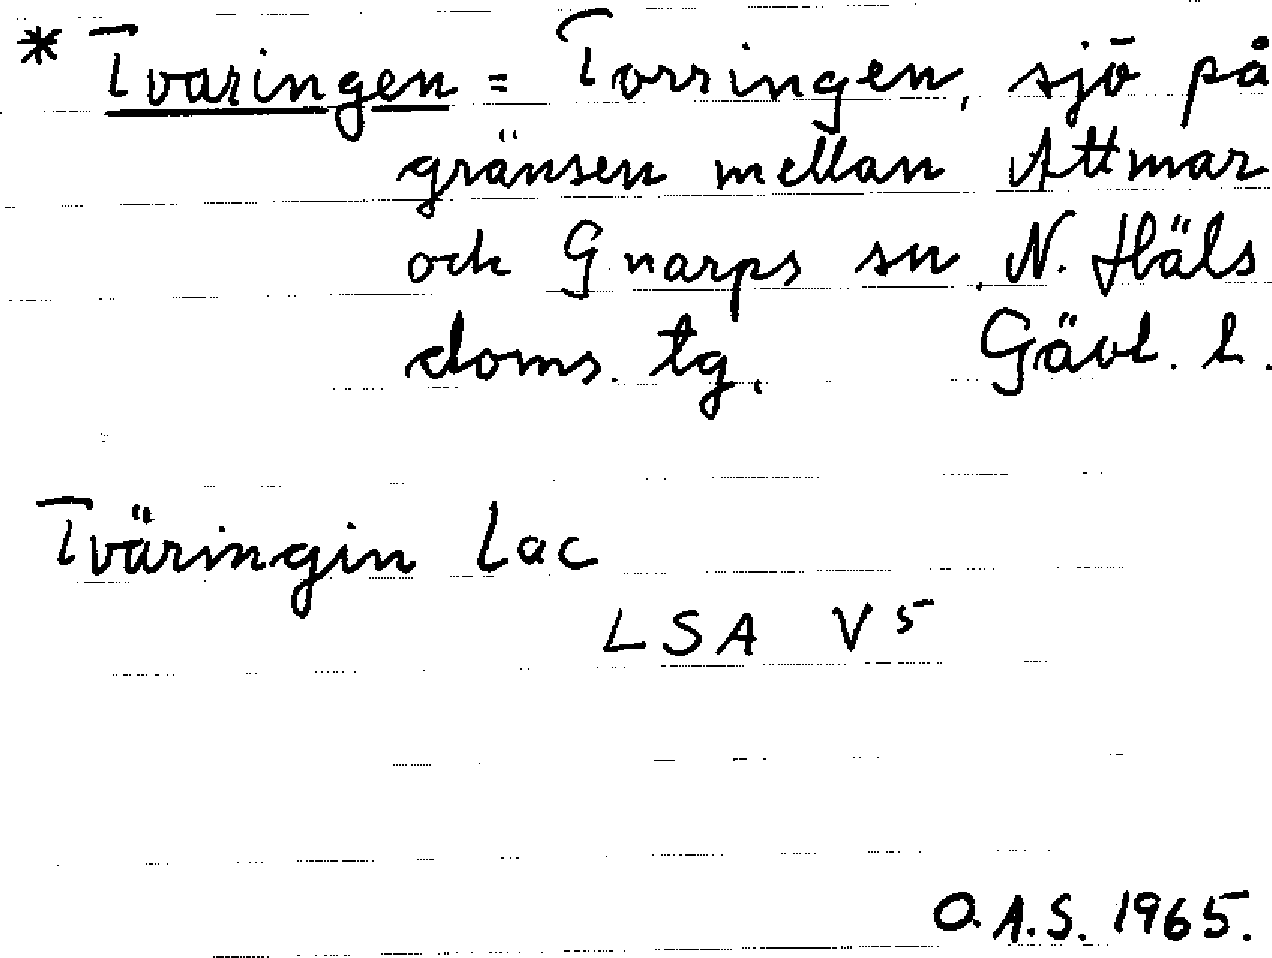 * Tvaringen = Torringen, sjö på
gränsen mellan Attmar
och Gnarps sn, N. Häls
doms. tg. Gävl. l.
Tväringin Lac
LSA V5
O.A.S. 1965.